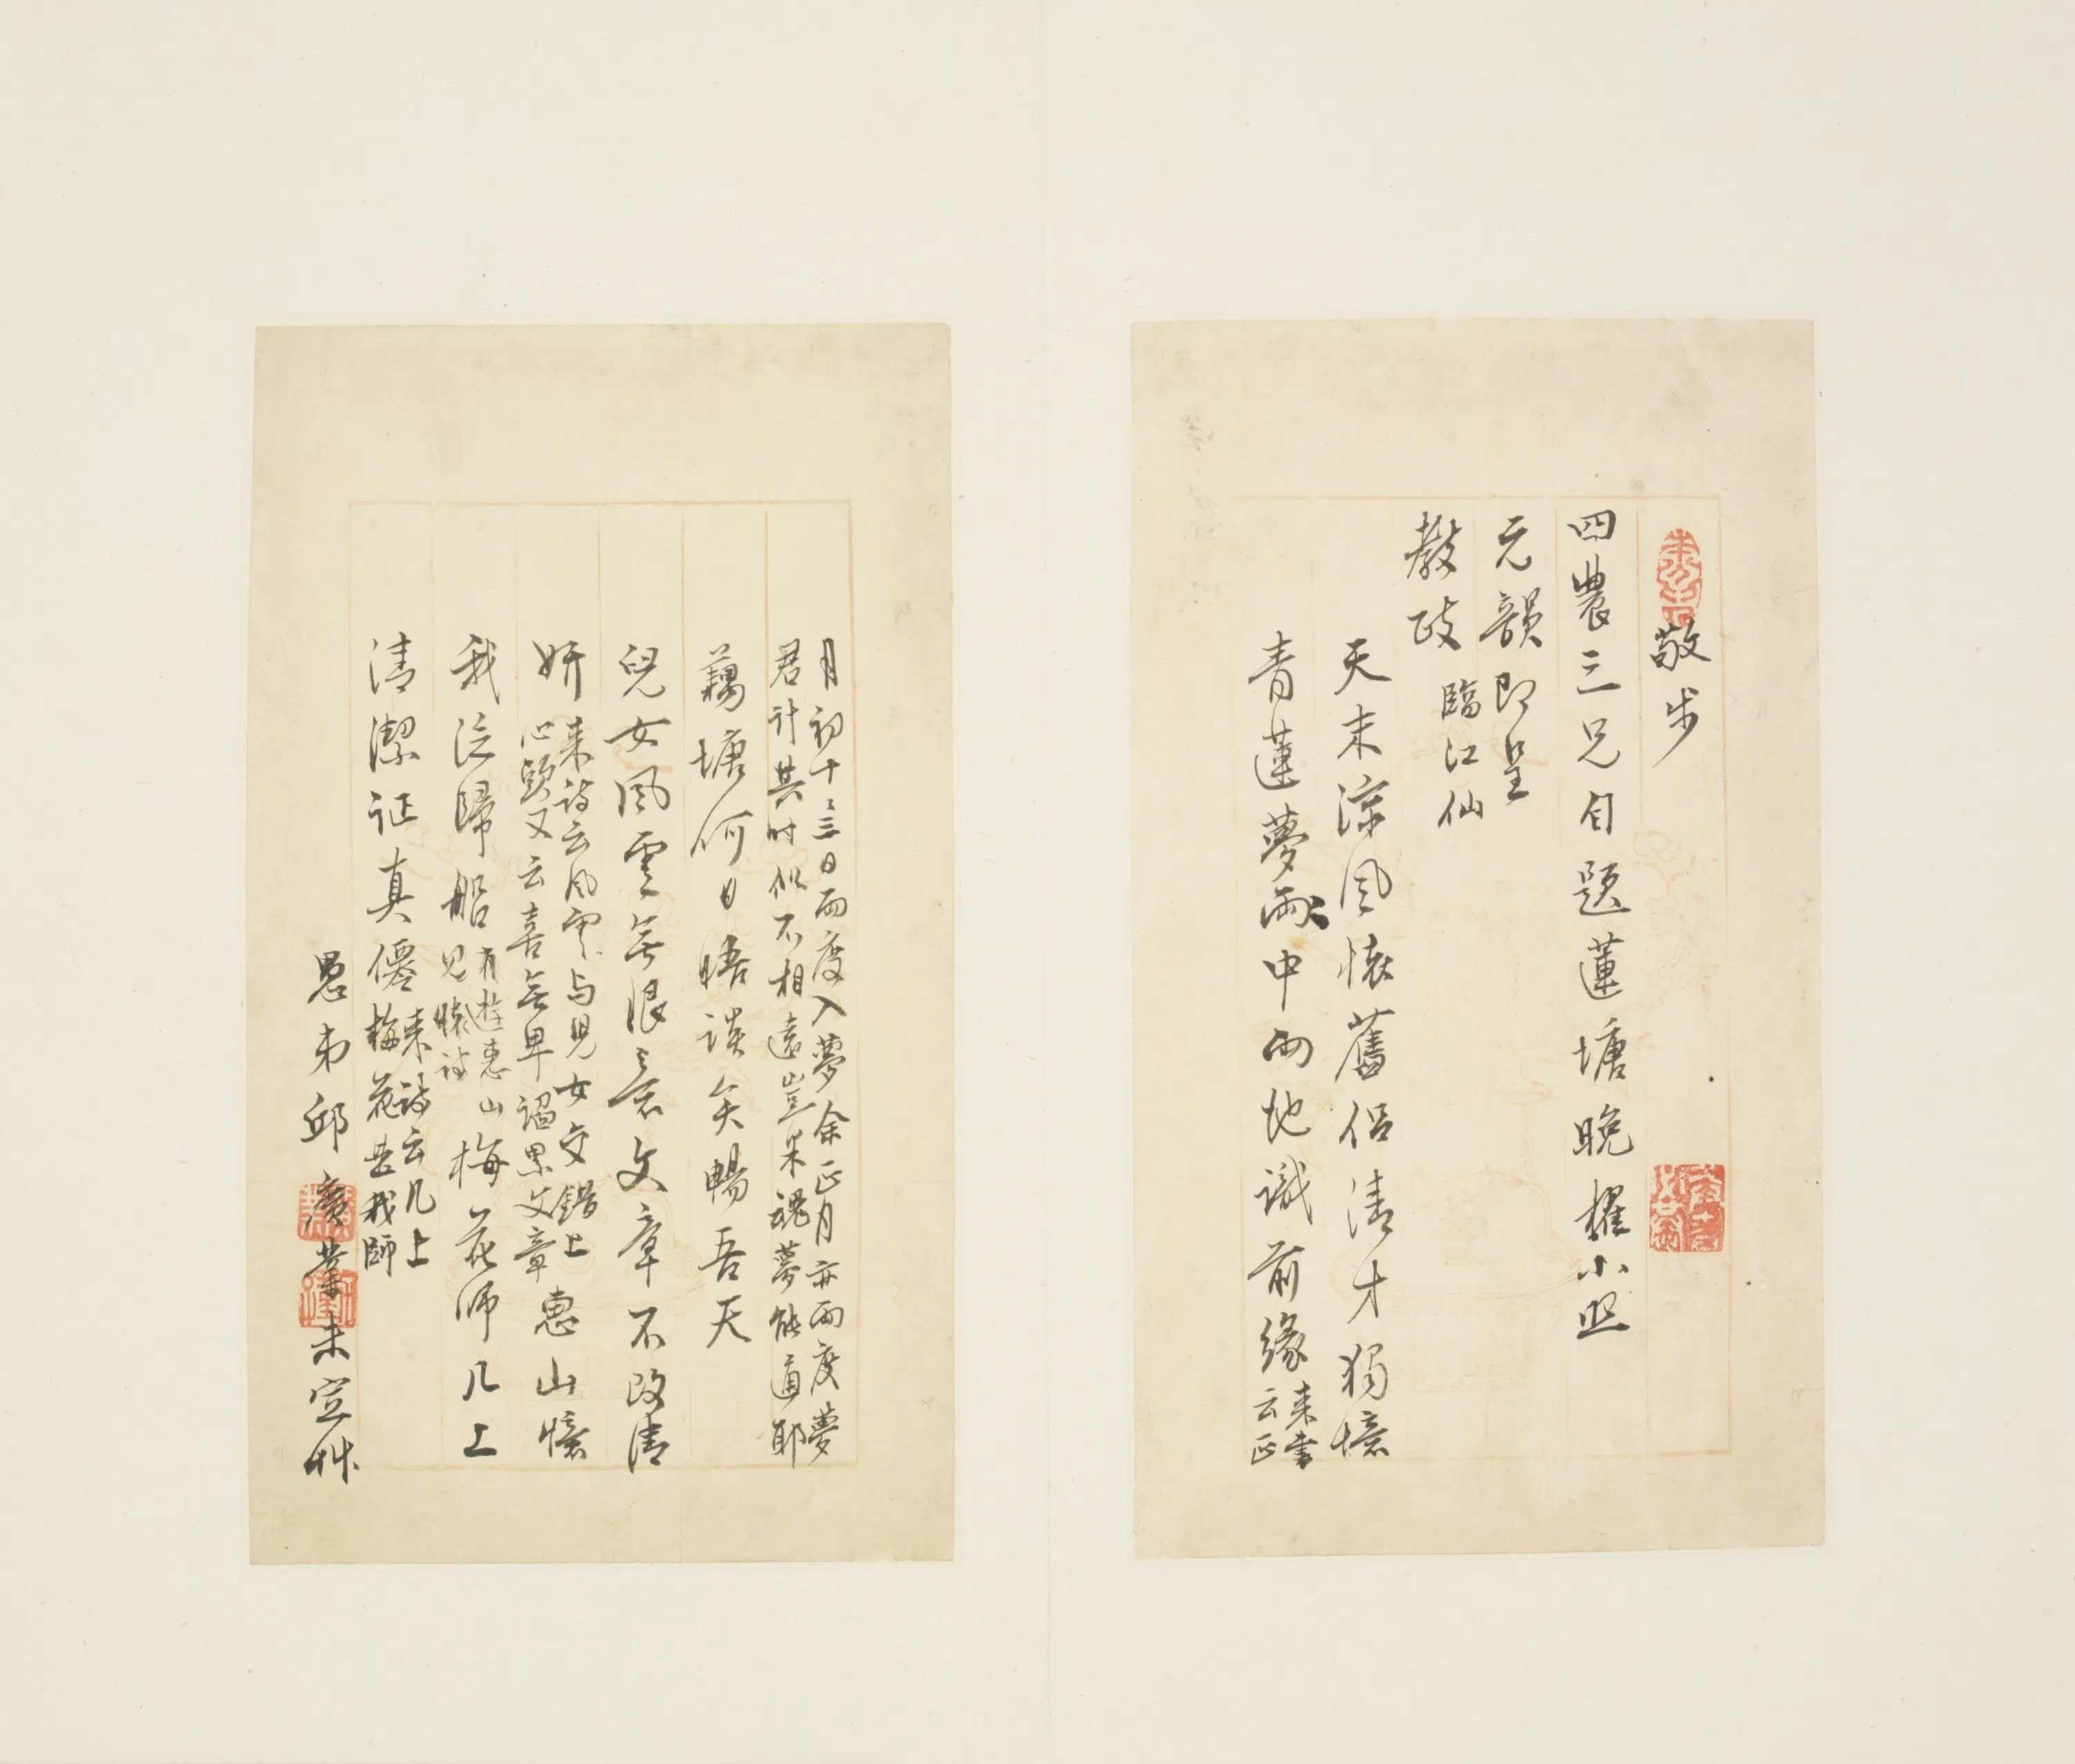 敬步
四農三兄自題蓮塘晚櫂小照
元韻即呈
教政
臨江仙
天末涼風懷舊侶清才獨憶
青蓮夢魂中兩地識前緣
来書
云正
月初十三日兩度入夢余正月亦兩度夢
君計其時似不相遠豈果魂夢能通耶
藕塘何日晤談矣暢吾天
兒女風雲無限意文章不改清
妍
来詩云風雲与兒女交錯上
心頭又云喜無卑謟累文章
惠山懷
我泛歸船
有遊惠山
見懷詩
梅花師几上
清潔证真僊
来詩云几上
梅花是我師
愚弟邱廣業未定艸